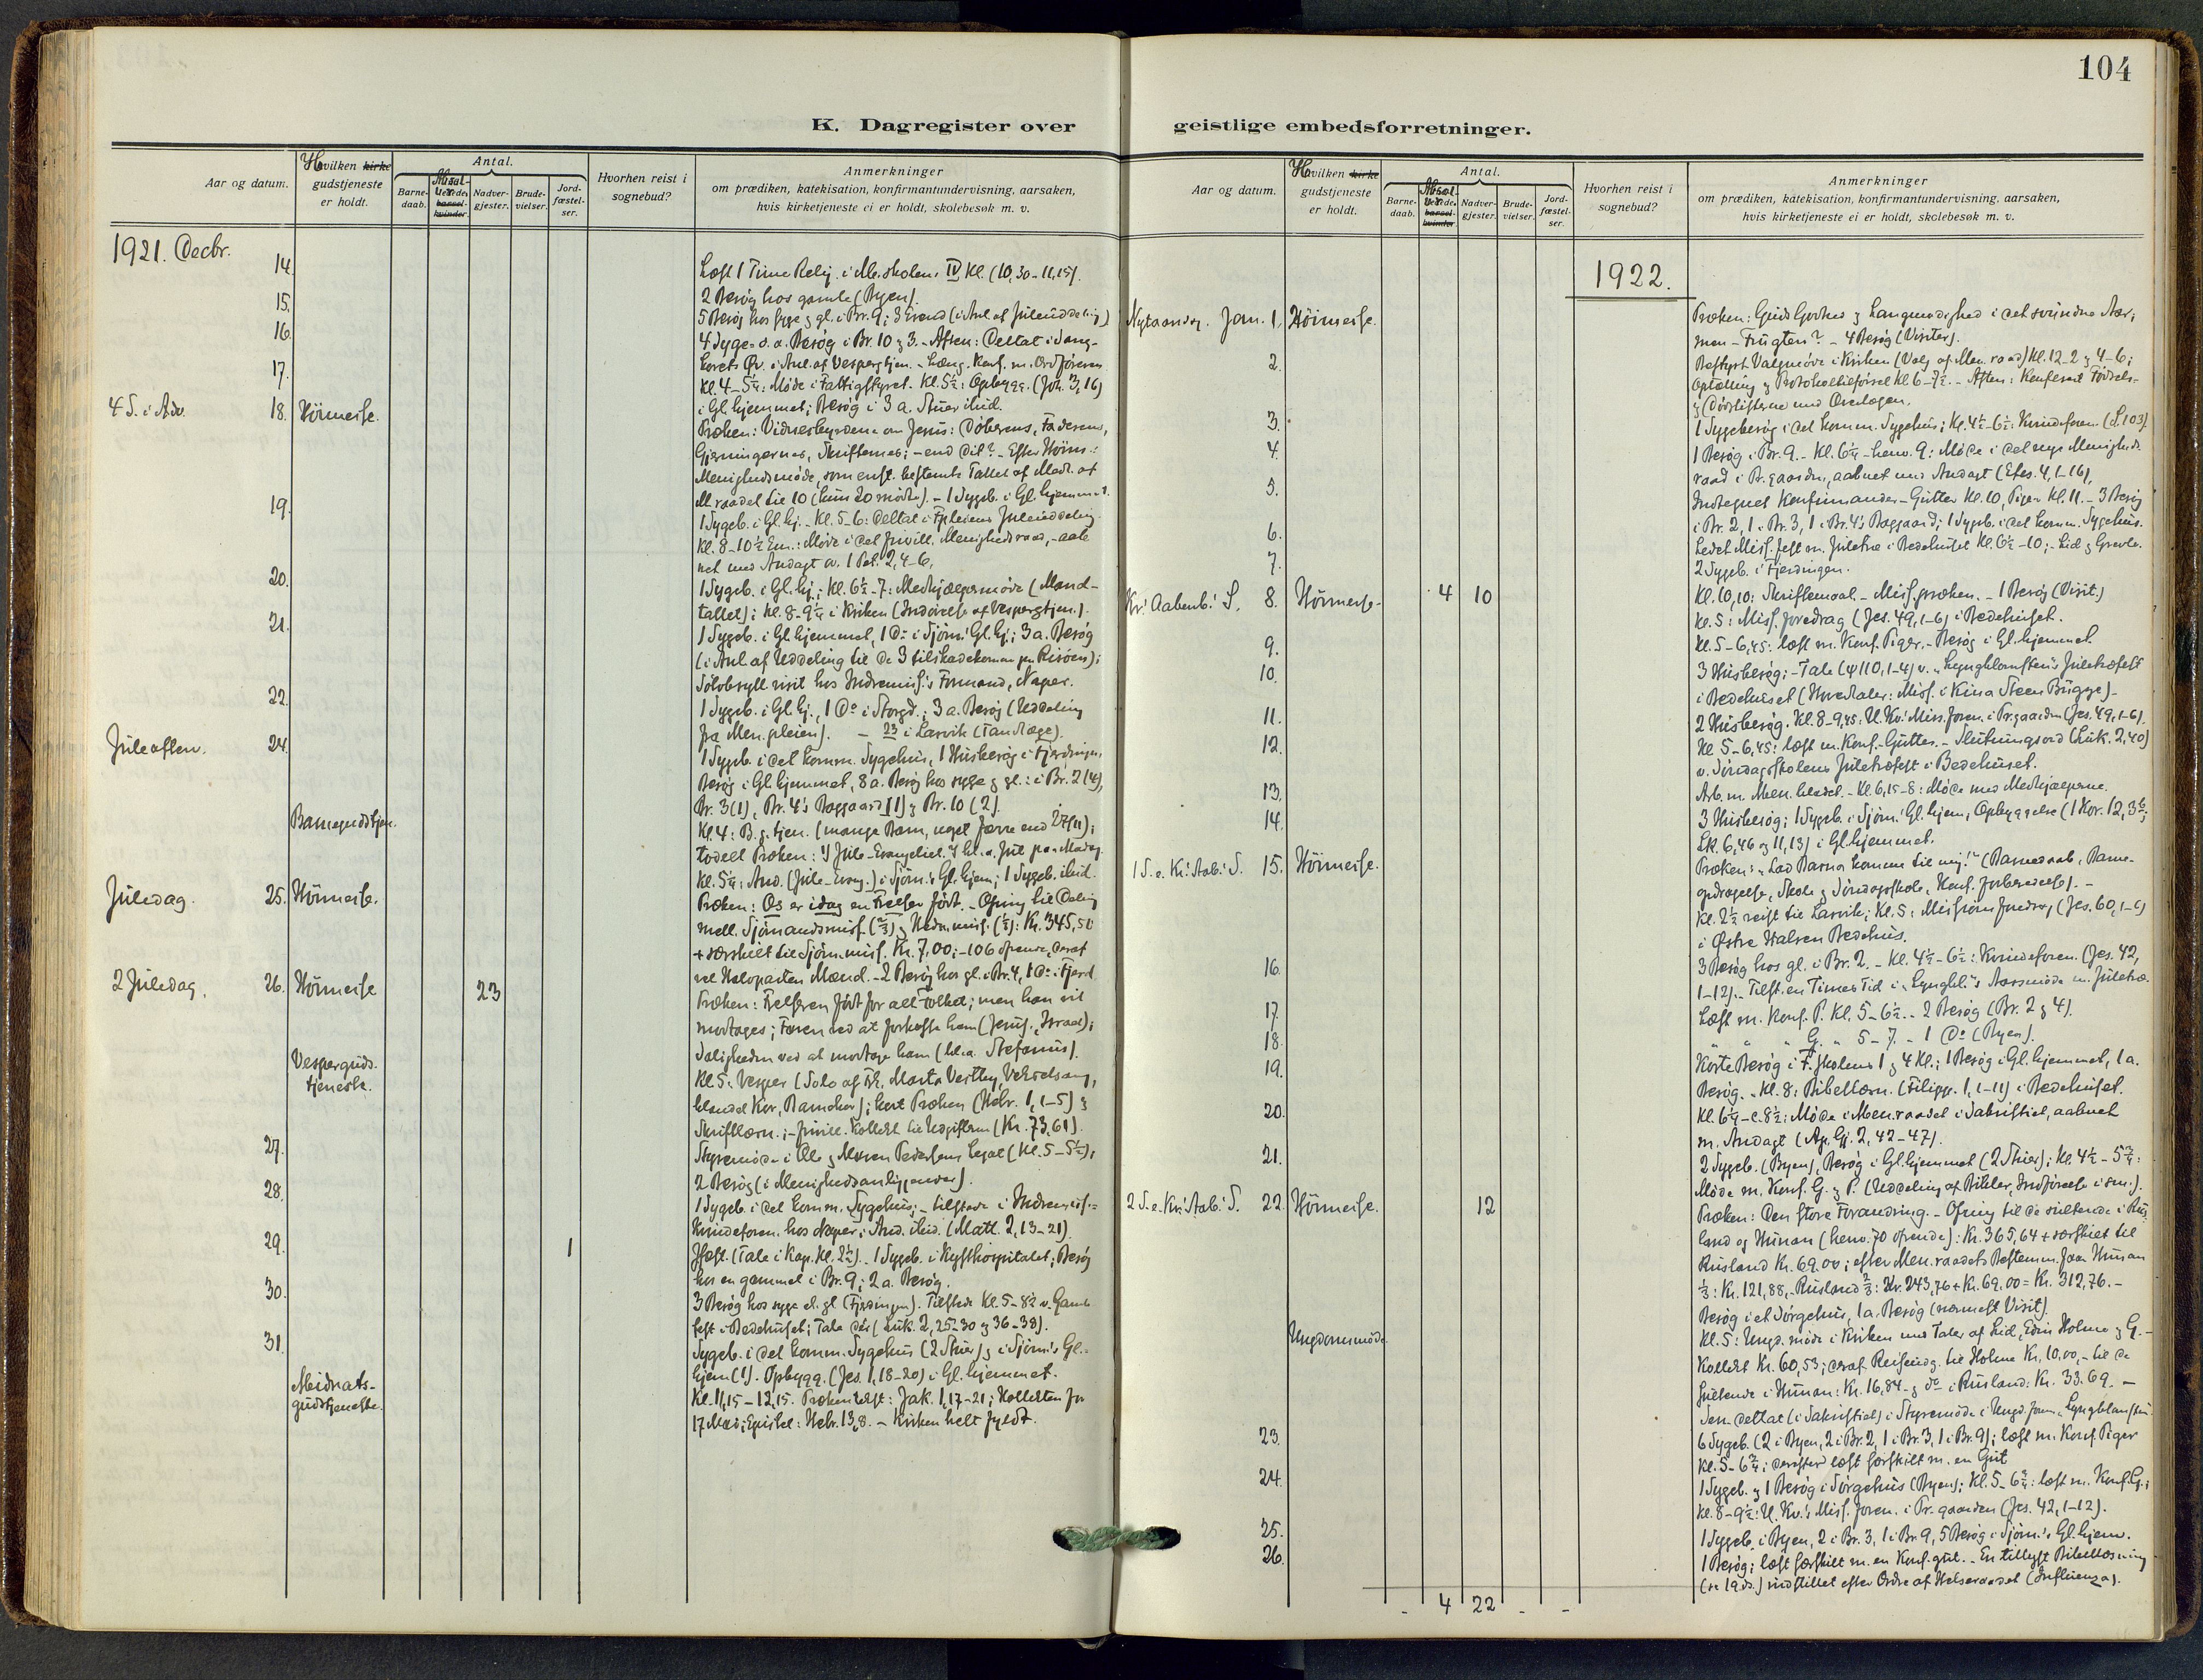 104
K. Dagregister over
geistlige embedsforretninger.
Aar og datum.
Hvilken kirke
gudstjeneste
er holdt.
Antal.
Barne-
daab.
Absol-
verede,
barsel-
kvinder.
Nadver-
gjester.
Brude-
vielser.
Jord-
fæstel-
ser.
Hvorhen reist i
sognebud?
Anmerkninger
om prædiken, katekisation, konfirmantundervisning, aarsaken,
hvis kirketjeneste ei er holdt, skolebesøk m. v.
1921. Decbr.
14. Læst 1 Time Relig. i M.skolens IV Kl. (10,30-11,15).
2 Besøg hos gamle (Byen).
15. 5 Besøg hos syge og gl. i Br. 9; 3 Ærend (i Anl. af Juleuddeling)
16. 4 Syge- o. a. Besøg i Br. 10 og 3. - Aften: Deltat i Sang-
korets Øv. i Anl. af Vespergtjen. - Læng. Konf. m. Ordføreren
17. Kl. 4-5¼: Møde i Fattigstyret. Kl. 5½: Opbygg. (Joh. 3,16)
i Gl. hjemmet; Besøg i 3 a. Stuer ibid.
4 S. i Adv. 18. Höimesse. Præken: Vidnesbyrdene om Jesus: Døberens, Faderens,
Gjerningernes, Skrifternes; - end dit? - Efter Höim.:
Menighedsmøde, som enst. bestemte Tallet af Medl. af
M.raadet til 10 (kun 20 mödte). - 1 Sygeb. i Gl. hjemmet.
19. 1 Sygeb. i Gl. hj. - Kl. 5-6: Deltat i Fpleiens Juleuddeling.
Kl. 8-10½ Em.: Møde i det frivill. Menighedsraad, - aab-
net med Andagt ov. 1 Pet. 2, 4-6.
20. 1 Sygeb. i Gl. hj.; Kl. 6½-7: Medhjælpermøde (Mand-
tallet); Kl. 8-9¼ i Kirken (Indøvelse af Vespergtjen.).
21. 1 Sygeb. i Gl. hjemmet, 1 do i Sjøm.s Gl. hj.; 3 a. Besøg
(i Anl. af Uddeling til de 3 tilskadekomne paa Risöen);
Sölvbryll. visit hos Indremiss.'s Formand, Naper.
22. 1 Sygeb. i Gl. hj., 1 do i Storgd.; 3 a. Besøg (Uddeling
fra Men. pleien). - 23 i Larvik (Tandlæge).
Juleaften. 24. 1 Sygeb. i det komm. Sygehus, 1 Husbesøg i Fjerdingen,
Besøg i Gl. hjemmet, 8 a. Besøg hos syge og gl.: i Br. 2 (4),
Br. 3 (1), Br. 4's Baggaard (1) og Br. 10 (2).
Barnegudstjen. Kl. 4: B. g. tjen. (mange Børn, noget færre end 27/11);
todelt Præken: 1) Jule-Evangeliet. 2) bl. a. Jul paa Madag.
Kl. 5¼: And. (Jule-Evang.) i Sjøm.s Gl. hjem; 1 Sygeb. ibid.
Juledag. 25. Höimesse. Præken: Os er idag en Frelser født. - Ofring til Deling
mell. Sjömandsmiss. (½) og Hedn. miss. (½): Kr. 345,50
+ særskilt til Sjöm. miss. Kr. 7,00; - 106 ofrende, deraf
vel Halvparten Mænd. - 2 Besøg hos gl. i Br. 4, 1 do i Fjerd.
2 Juledag. 26. Höimesse 23 Præken: Frelseren født for alt Folket; men han vil
modtages; Faren ved at forkaste ham (Jerus., Israel);
Saligheden ved at modtage ham (bl. a. Stefanus).
Vesperguds-
tjeneste. Kl. 5: Vesper (Solo af Frk. Marta Vestby, Vekselsang,
blandet Kor, Barnekor); kort Præken (Hebr. 1, 1-5) og
Skriftlæsn.; - frivill. Kollekt til Udgifterne (Kr. 73,61).
27. Styremøde i Ole og Maren Pedersens Legat (Kl. 5-5½);
2 Besøg (i Menighedsanliggender).
28. 1 Sygeb. i det komm. Sygehus; - tilstede i Indremiss.-
Kvindeforen. hos Naper; And. ibid. (Matt. 2, 13-21).
29. 1 Jfæst. (Tale i Kap. Kl. 2½). - 1 Sygeb. i Kysthospitalet; Besøg
hos en gammel i Br. 9; 2 a. Besøg.
30. 3 Besøg hos syge el. gl. (Fjerdingen). Tilstede Kl. 5-8½ v. Gamle
fest i Bedehuset; Tale der (Luk. 2, 25-30 og 36-38).
31. Sygeb. i det komm. Sygehus (2 Stuer) og i Sjöm.s Gl.-
hjem (1). Opbygg. (Jes. 1, 18-20) i Gl. hjemmet.
Meidnats-
gudstjeneste. Kl. 11,15-12,15. Prækentekst: Jak. 1, 17-21; Kollekten for
17 Mai; Epistel: Hebr. 13,8. - Kirken helt fyldt.
Aar og datum.
Hvilken kirke
gudstjeneste
er holdt.
Antal.
Barne-
daab.
Absol-
verede,
barsel-
kvinder.
Nadver-
gjester.
Brude-
vielser.
Jord-
fæstel-
ser.
Hvorhen reist i
sognebud?
Anmerkninger
om prædiken, katekisation, konfirmantundervisning, aarsaken,
hvis kirketjeneste ei er holdt, skolebesøk m. v.
1922.
Nytaarsdag. Jan. 1. Höimesse. Præken: Guds Godhed og Langmodighed i det svundne Aar;
men - Frugten? - 4 Besøg (Visiter).
2. Bestyrt Valgmøde i Kirken (Valg af Men. raad) Kl. 12-2 og 4-6;
Optælling og Protokoltilførsel Kl. 6-7½. - Aften: Konfereret Fødsels-
og Dødslisterne med Overlægen.
3. 1 Sygebesøg i det komm. Sygehus; Kl. 4½-6½: Kvindeforen. (S. 103).
4. 1 Besøg i Br. 9. - Kl. 6¼-henv. 9: Møde i det nye Menigheds-
raad i Pr. gaarden, aabnet med Andagt (Efes. 4, 1-16).
5. Indtegnet Konfirmander - Gutter Kl. 10, Piger Kl. 11. - 3 Besøg
i Br. 2, 1 i Br. 3, 1 i Br. 4's Baggaard; 1 Sygeb. i det komm. Sygehus.
6. Ledet Miss. fest m. Juletræ i Bedehuset Kl. 6½-10; - Lid og Grevle.
7. 2 Sygeb. i Fjerdingen.
Kr. Aabenb. S. 8. Höimesse- 4 10 Kl. 10,10: Skriftemaal. - Miss. præken. - 1 Besøg (Visit.)
Kl. 5: Miss. foredrag (Jes. 49, 1-6) i Bedehuset.
9. Kl. 5-6,45: læst m. Konf. Piger. - Besøg i Gl. hjemmet.
10. 3 Husbesøg; - Tale (ψ 110, 1-4) v. „Lyngblomsten"s Juletræfest
i Bedehuset (Hovedtaler: Miss. i Kina Steen Bugge).
11. 2 Husbesøg. Kl. 8-9,45: U. Kv.s Miss. foren. i Pr. gaarden (Jes. 49, 1-6).
12. Kl 5-6,45: læst m. Konf.-Gutter. - Slutningsord (Luk. 2, 40)
v. Söndagsskolens Juletræfest i Bedehuset.
13. Arb. m. Men. bladet. - Kl. 6,15-8: Møde med Medhjælperne.
14. 3 Husbesøg; 1 Sygeb. i Sjöm.s Gl. hjem, Opbyggelse (1 Kor. 12, 3b;
Lk. 6, 46 og 11, 13) i Gl. hjemmet.
1 S. e. Kr. Aab. S. 15. Höimesse. Præken: „Lad Børna komme til mig!" (Barnedaab, Barne-
opdragelse, Skole og Söndagsskole, Konf. forberedelse). -
Kl. 2½ reist til Larvik; Kl. 5: Missionsforedrag (Jes. 60, 1-6)
i Østre Halsen Bedehus.
16. 3 Besøg hos gl. i Br. 2. - Kl. 4½-6½: Kvindeforen. (Jes. 42,
1-12). - Tilst. en Times Tid i „Lyngbl."s Aarsmøde m. Juletræ.
17. Læst m. Konf. P. Kl. 5-6½. - 2 Besøg (Br. 2 og 4).
18. " " " G. " 5-7. - 1 do (Byen).
19. Korte Besøg i F. skolens 1 og 4 Kl.; 1 Besøg i Gl. hjemmet, 1 a.
Besøg. - Kl. 8: Bibellæsn. (Filipp. 1, 1-11) i Bedehuset.
20. Kl. 6¼-c. 8½: Møde i Men. raadet i Sakristiet, aabnet
m. Andagt (Ap. Gj. 2, 42-47).
21. 2 Sygeb. (Byen), Besøg i Gl. hjemmet (2 Stuer); Kl. 4½-5¾:
Møde m. Konf. G. og P. (Uddeling af Bibler, Indførelse i sm.).
2 S. e. Kr. Aab. S. 22. Höimesse. 12 Præken: Den store Forandring. - Ofring til de sultende i Rus-
land og Hunan (henv. 70 ofrende): Kr. 365,64 + særskilt til
Rusland Kr. 69.00; efter Men. raadets Bestemm. faar Hunan
⅓: Kr. 121,88, - Rusland ⅔: Kr. 243,76 + Kr. 69.00 = Kr. 312,76. -
Besøg i et Sørgehus, 1 a. Besøg (nærmest Visit).
Ungdomsmöde Kl. 5: Ungd. møde i Kirken med Taler af Lid, Edin Holme og G. -
Kollekt Kr. 60,53; deraf Reiseudg. til Holme Kr. 10,00, - til de
sultende i Hunan: Kr. 16,84 - og do i Rusland: Kr. 33.69. -
Sen. deltat (i Sakristiet) i Styremøde i Ungd. foren. „Lyngblomsten".
23. 6 Sygeb. (2 i Byen, 2 i Br. 2, 1 i Br. 3, 1 i Br. 9); læst m. Konf. Piger
Kl. 5-6¾; derefter læst særskilt m. en Gut
24. 1 Sygeb. og 1 Besøg i Sørgehus (Byen); Kl. 5-6¾: læst m. Konf. G.;
Kl. 8-9½: U. Kv.s Miss. foren. i Pr. gaarden (Jes. 42, 1-12).
25. 1 Sygeb. i Byen, 2 i Br. 3, 1 i Br. 9, 5 Besøg i Sjöm.s Gl. hjem.
26. 1 Besøg; læst særskilt m. en Konf. gut. - En tillyst Bibellæsning
(se 19 ds.) indstillet efter Ordre af Helseraadet (Influenza).
- 4 22 - -